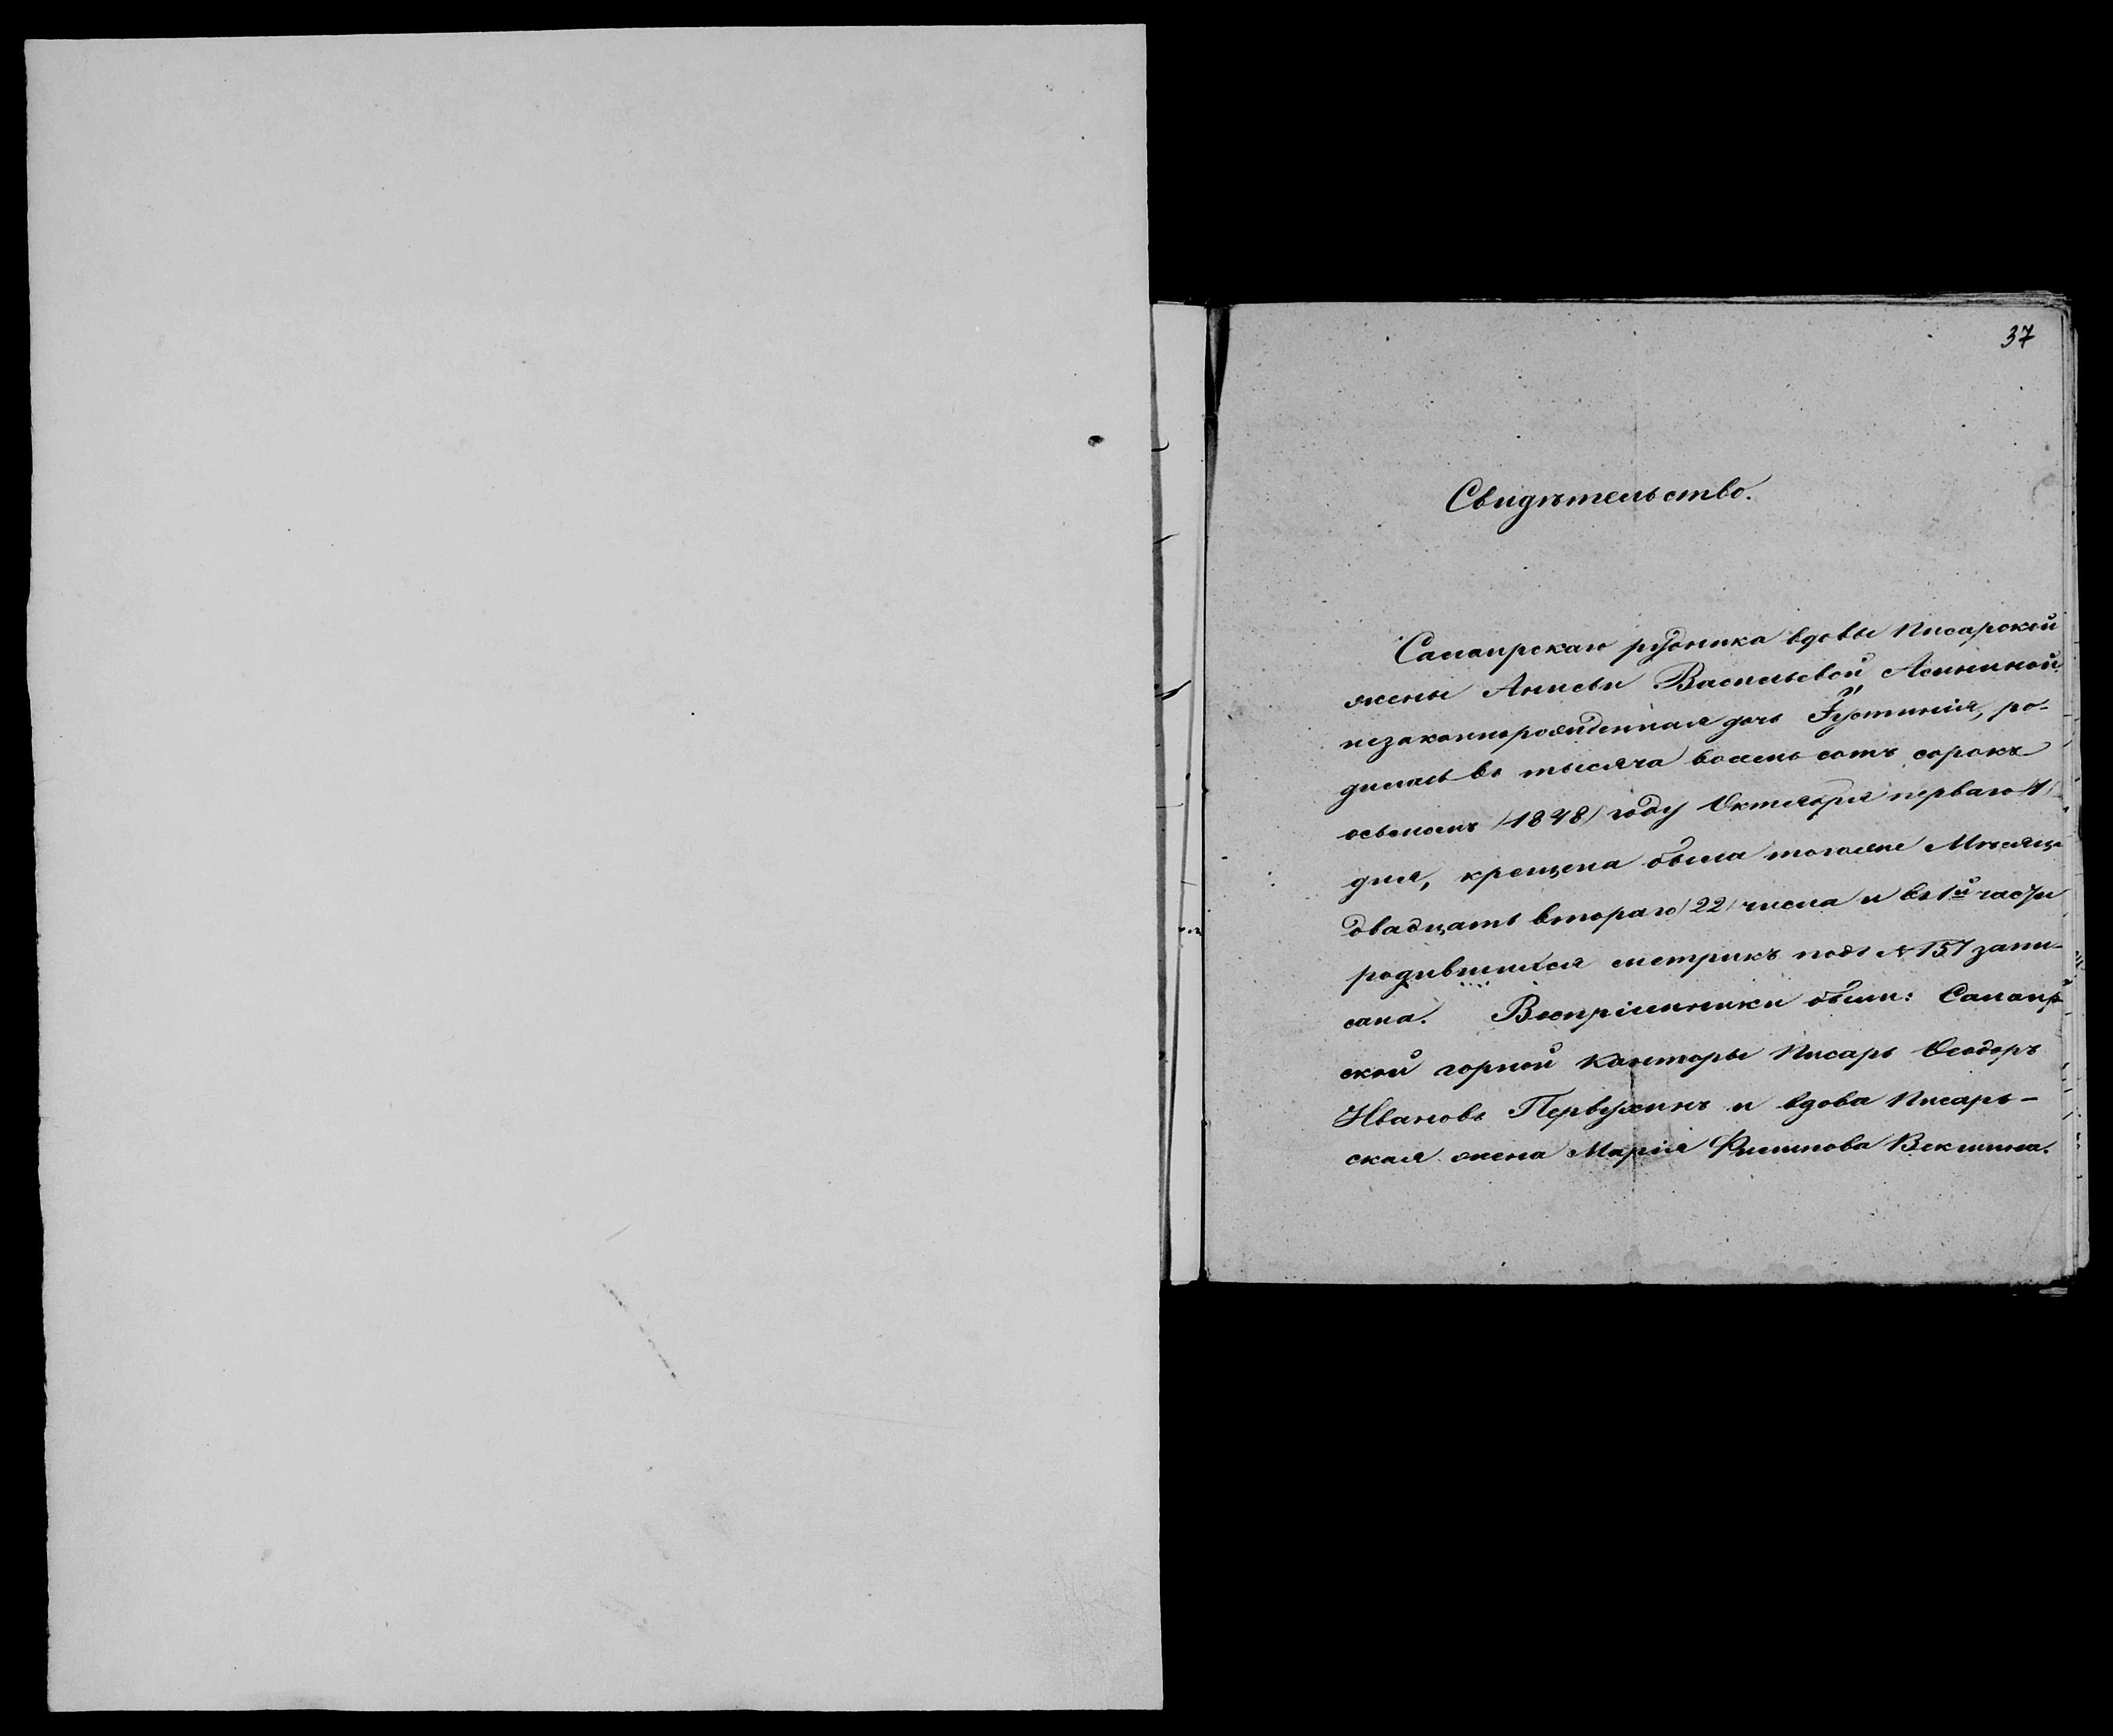 37
Свидѣтельство.
Салаирскаго рудника вдовы писарской
жены Анисьи Васильевой
незаконнорожденная дочь Іустинія, ро-
дилась въ тысяча восемь сотъ сорокъ
осьмомъ /1848/ году Октября перваго /1/
дня, крещена была тогоже Мѣсяца
двадцать втораго /22/ числа и въ 1й части
родившихся метрикъ подъ № 157 запи-
сана. Воспріемники были: Салаир-
ской горной Канторы Писарь Ѳеодоръ
Ивановъ Первухинъ и вдова Писарь-
ская жена Марія Филипова Векшина.